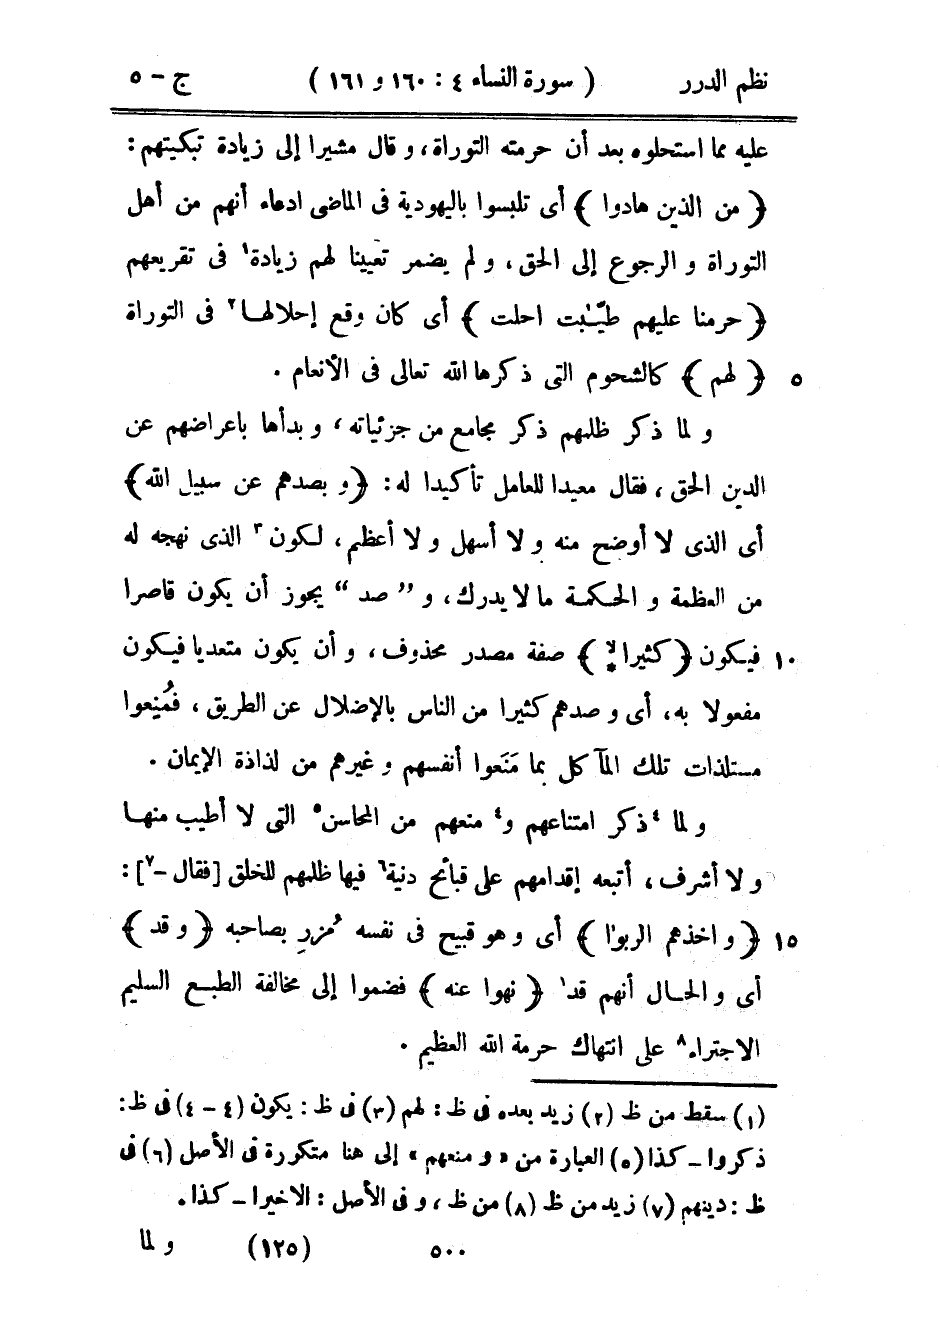 نظم الدرر ( سورة النساء ٤ : ١٦٠ و ١٦١ ) ج - ٥
عليه مما استحلوه بعد أن حرمته التوراة، و قال مشيرا إلى زيادة تبكيتهم :
﴿ من الذين هادوا ﴾ أى تلبسوا باليهودية فى الماضى ادعاء أنهم من أهل
التوراة و الرجوع إلى الحق، و لم يضمر تعيينا لهم زيادة١ فى تقريعهم
﴿ حرمنا عليهم طيّبٰت احلت ﴾ أى كان وقع إحلالهـا٢ فى التوراة
٥ ﴿ لهم ﴾ كالشحوم التى ذكرها الله تعالى فى الأنعام .
و لما ذكر ظلمهم ذكر مجامع من جزئياته، و بدأها باعراضهم عن
الدين الحق، فقال معيدا للعامل تأكيدا له: ﴿ و بصدهم عن سبيل الله ﴾
أى الذى لا أوضح منه و لا أسهل و لا أعظم، لكون٣ الذى نهجه له
من العظمة و الحكمة ما لا يدرك، و ”صد“ يجوز أن يكون قاصرا
١٠ فيكون ﴿ كثيرا ۙ﴾ صفة مصدر محذوف، و أن يكون متعديا فيكون
مفعولا به، أى و صدهم كثيرا من الناس بالإضلال عن الطريق، فمُنِعوا
مستلذات تلك المآكل بما مَنَعوا أنفسهم و غيرهم من لذاذة الإيمان .
و لما ٤ذكر امتناعهم و٤ منعهم من المحاسن٥ التى لا أطيب منهـا
و لا أشرف، أتبعه إقدامهم على قبائح دنية٦ فيها ظلمهم للخلق [فقال -٧]:
١٥ ﴿ و اخذهم الربوٰا ﴾ أى و هو قبيح فى نفسه مُزرٍ بصاحبه ﴿ و قد ﴾
أى و الحـال أنهم قد١ ﴿ نهوا عنه ﴾ فضموا إلى مخالفة الطبـع السليم
الاجتراء٨ على انتهاك حرمة الله العظيم .
(١) سقط من ظ (٢) زيد بعده فى ظ : لهم (٣) فى ظ : يكون (٤ - ٤) فى ظ:
ذكروا - كذا (٥) العبارة من « و منعهم » إلى هنا متكررة فى الأصل (٦) فى
ظ : دينهم (٧) زيد من ظ (٨) من ظ، و فى الأصل : الاخيرا - كذا .
٥٠٠ (١٢٥) و لما